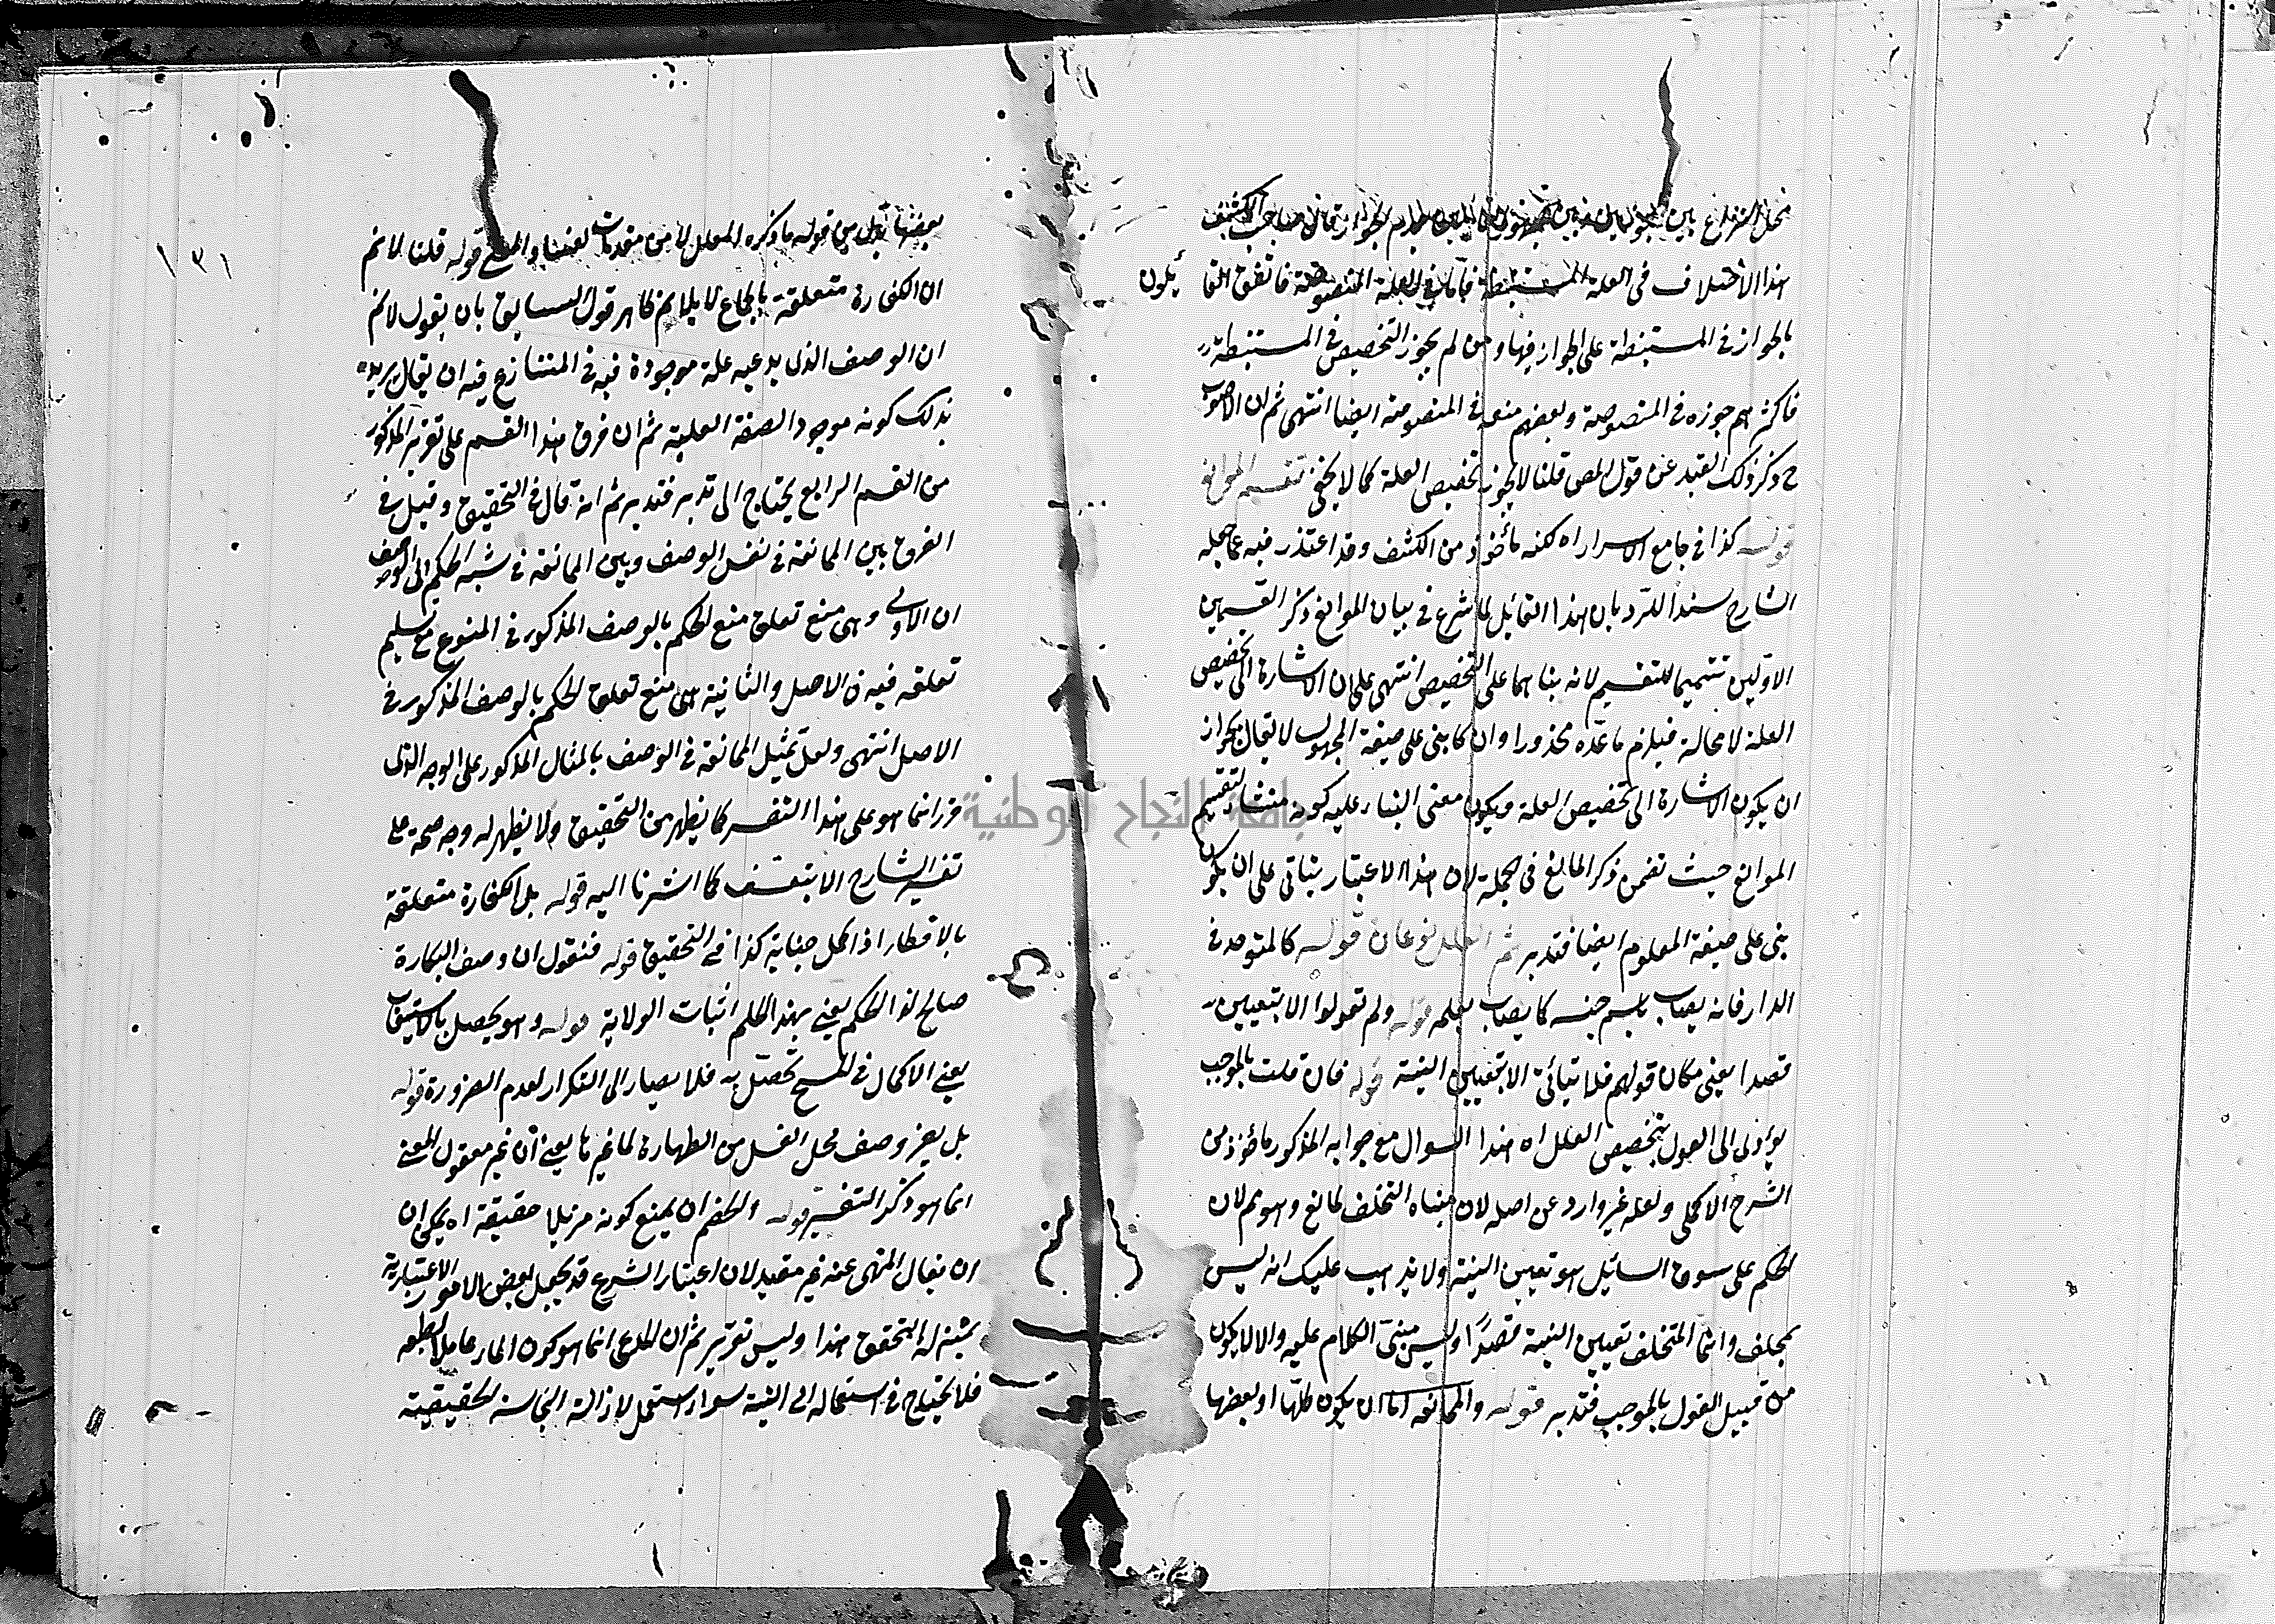 محل النزاع بين
هذا الاختلاف في العلة المستنبطة فاما في العلة المنصوصة فاتفق القا يلون
بالجواز في المستنبطة على الجواز فيها ومن لم يجوز التخصيص في المستنبطة
فاكثرهم جوزه في المنصوصة وبعضهم منعه في المنصوصة ايضا انتهى ثم ان الاصوب
ح ذكر ذلك القيد عن قول المص قلنا لا يجوز تخصيص العلة كما لا يخفى تقسيم الموانع
قوله كذا في جامع الاسرار اه لكنه مأخوذ من الكشف وقد اعتذر فيه عما جعله
الشارح سندا للرد بان هذا القائل لما شرع في بيان الموانع ذكر القسمين
الاولين تتميما للتقسيم لانه بناهما على التخصيص انتهى على ان الاشارة الى تخصيص
العلة لا محالة فيلزم ما عده محذورا وان كا بنى على صيغة المجهول لا يقال بجواز
ان يكون الاشارة الى تخصيص العلة ويكون معنى البناء عليه كونه منشأ لتقسيم
الموانع حيث تضمن ذكر المانع في الجملة لان هذا الاعتبار يتأتى على ان يكون
بنى على صيغة المعلوم ايضا فتدبر ثم العلل نوعان قوله كالمتوحد في
الدار فانه يصاب باسم جنسه كما يصاب بعلمه قوله ولم تقولوا الا بتعيين
قصدا يعني مكان قولهم فلا يتأتى الا بتعيين النية قوله فان قلت بالموجب
يؤدي الى القول بتخصيص العلل اه هذا السوال مع جوابه المذكور مأخوذ من
الشرح الاكملي ولعله غير وارد عن اصله لان مبناه التخلف لمانع وهو ثم لان
الحكم على سوق السائل هو تعيين النية ولا يذهب عليك انه ليس
بمخلف وانما المتخلف تعيين النية قصدًا وليس مبنى الكلام عليه والا لا يكون
من قبيل القول بالموجب فتدبر قوله والممانعة اما ان يكون كلها او بعضها
١٣١
قوله ما ذكره المعلل لا من مقدمات قوله قلنا لا نم
ان الكفارة متعلقة بالجماع لا يلايم ظاهر قوله السابق بان يقول لا نم
ان الوصف الذي يدعيه علة موجودة فيه في المتنازع فيه الا ان يقال يريد
بذلك كونه موجود الصفة العلية ثم ان فرق هذا القسم على تقريره المذكور
من القسم الرابع يحتاج الى تدبر فتدبر ثم انه قال في التحقيق وقيل في
الفرق بين الممانعة في نفس الوصف وبين الممانعة في نسبة الحكم الى الوصف
ان الاولى وهي منع تعلق منع الحكم بالوصف المذكور في الفروع مع تسليم
تعلقه فيه في الاصل والثانية هي منع تعلق الحكم بالوصف المذكور في
الاصل انتهى ولعل تمثيل الممانعة في الوصف بالمثال المذكور على الوجه الذي
قرر انما هو على هذا التفسير كما يظهر من التحقيق ولا يظهر له وجه صحة على
تفسير الشارح الا بتعسف كما اشرنا اليه قوله بل الكفارة متعلقة
بالافطار اذا كمل جناية كذا في التحقيق قوله فنقول ان وصف البكارة
صالح لهذا الحكم يعني بهذا الحكم اثبات الولاية قوله وهو يحصل بالاستيعاب
يعني الاكمال في المسح تحصل به فلا يصار الى التكرار لعدم الضرورة قوله
بل يغير وصف محل الغسل من الطهارة لما غيرها يعني ان غير معقول المعنى
انما هو ذكر التفسير قوله وللخصم ان يمنع كونه مزيلا حقيقة اه يمكن ان
ان يقال المنهى عنه غير مقيد لان اعتبار الشرع قد يجعل بعض الامور الاعتبارية
بمنزلة المتحقق هذا وليس تقرير ثم ان المدعى انما هو كون الماء عاملا بطبعه
فلا يحتاج في استعماله الى النية سواء استعمل لازالة النجاسة الحقيقية
جامعة النجاح الوطنية